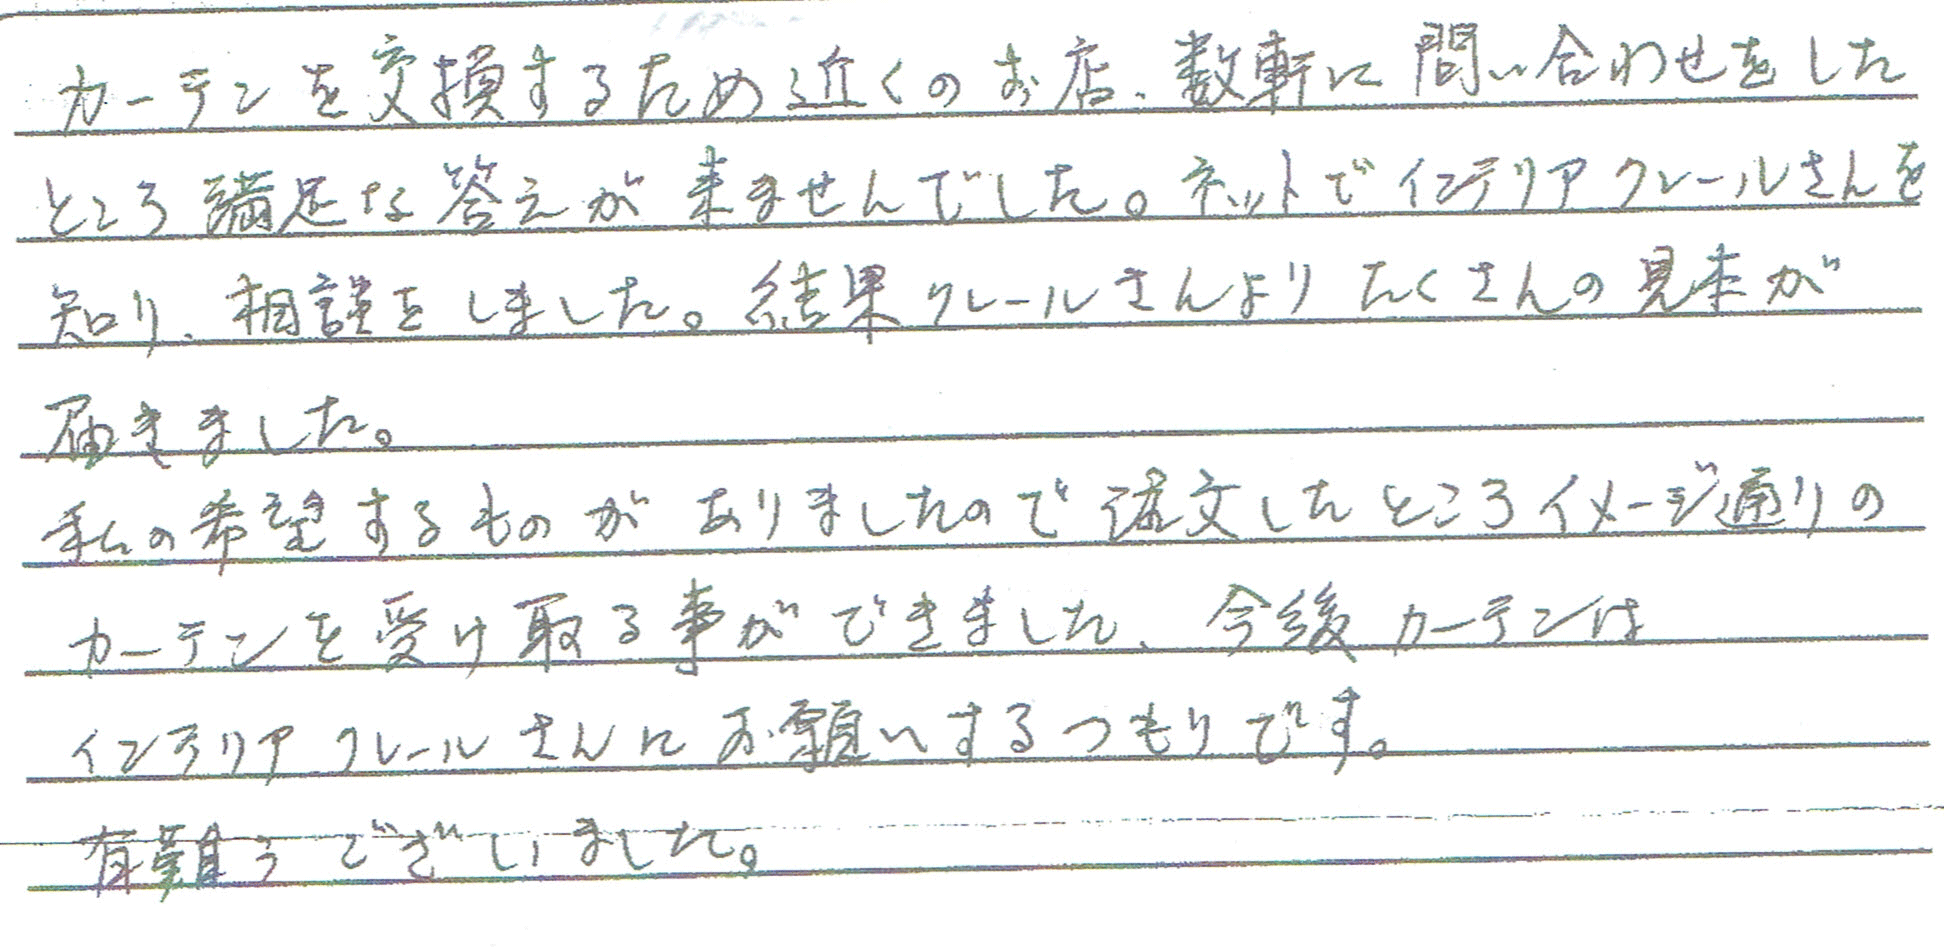 カーテンを交換するため近くのお店、数軒に問い合わせをした
ところ満足な答えが来ませんでした。ネットでインテリアクレールさんを
知り、相談をしました。結果クレールさんよりたくさんの見本が
届きました。
私の希望するものがありましたので注文したところイメージ通りの
カーテンを受け取る事ができました、今後カーテンは
インテリアクレールさんにお願いするつもりです。
有難うございました。